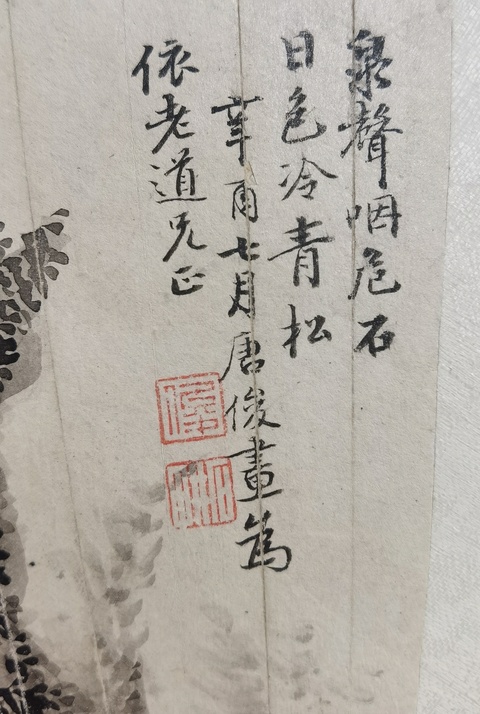 泉聲咽危石
日色冷青松
辛酉七月唐俊畫為
依老道兄正